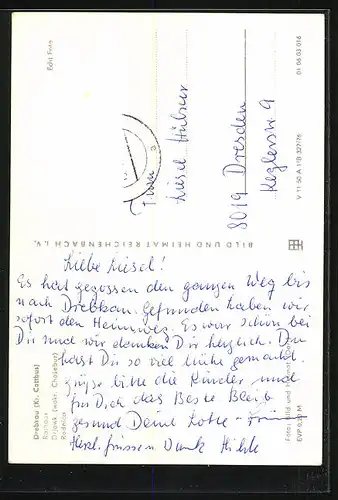 Liebe Liesel!
Es hat gegossen den ganzen Weg bis
nach Drebkau. Gefunden haben wir
sofort den Heimweg. Es war schön bei
Dir und wir danken Dir herzlich. Du
hast Dir so viel Mühe gemacht.
Grüße bitte die Kinder und
für Dich das Beste Bleib
gesund Deine Lotte
Herzl.
Frau
Liesel Hübner
8019 Dresden
Keglerstr 9
Drebkau (Kr. Cottbus)
Rathaus
Drjowk (wokr. Chośebuz)
Radnica
BILD UND HEIMAT REICHENBACH i. V.
Echt Foto
V 11 50 A 1/B 327/76
01 06 03 016
EVP 0,20 M